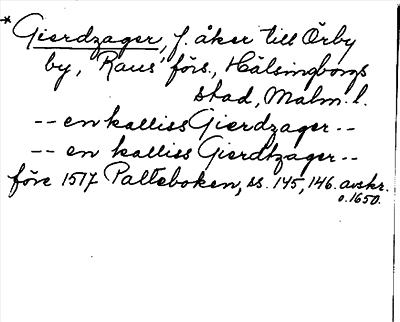 * Gierdzager, f. åker till Örby
by, Raus' förs., Hälsingborgs
stad, Malm. l.
-- en kalliss Gierdzager --
-- en kalliss Gierdtzager --
före 1517 Palteboken, ss. 145, 146. avskr.
o. 1650.